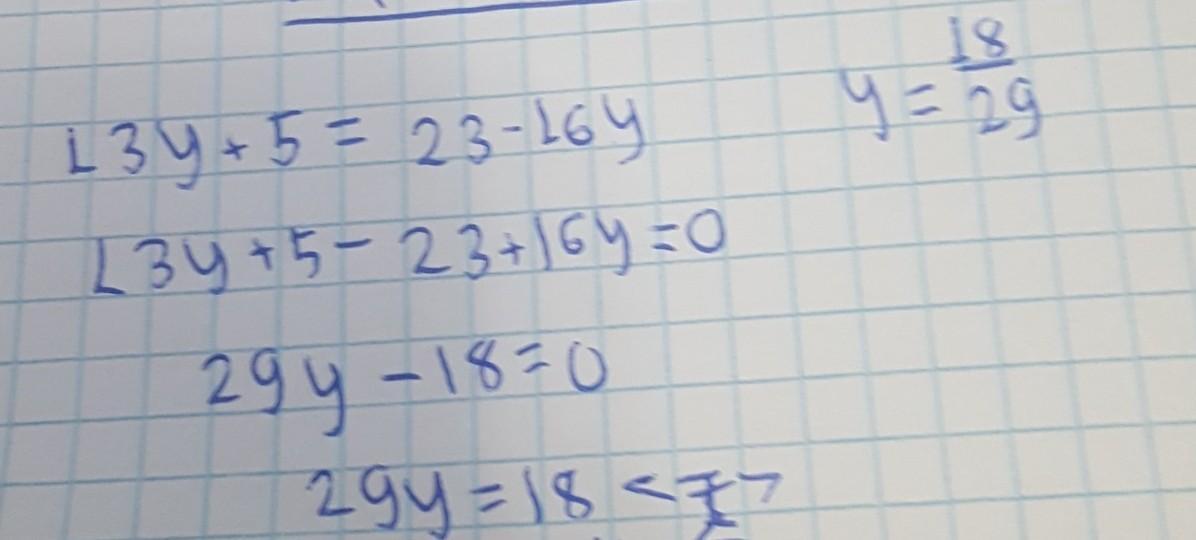 13y + 5 = 23 - 16y
13y + 5 - 23 + 16y = 0
29y - 18 = 0
29y = 18 <=>
y = 18/29